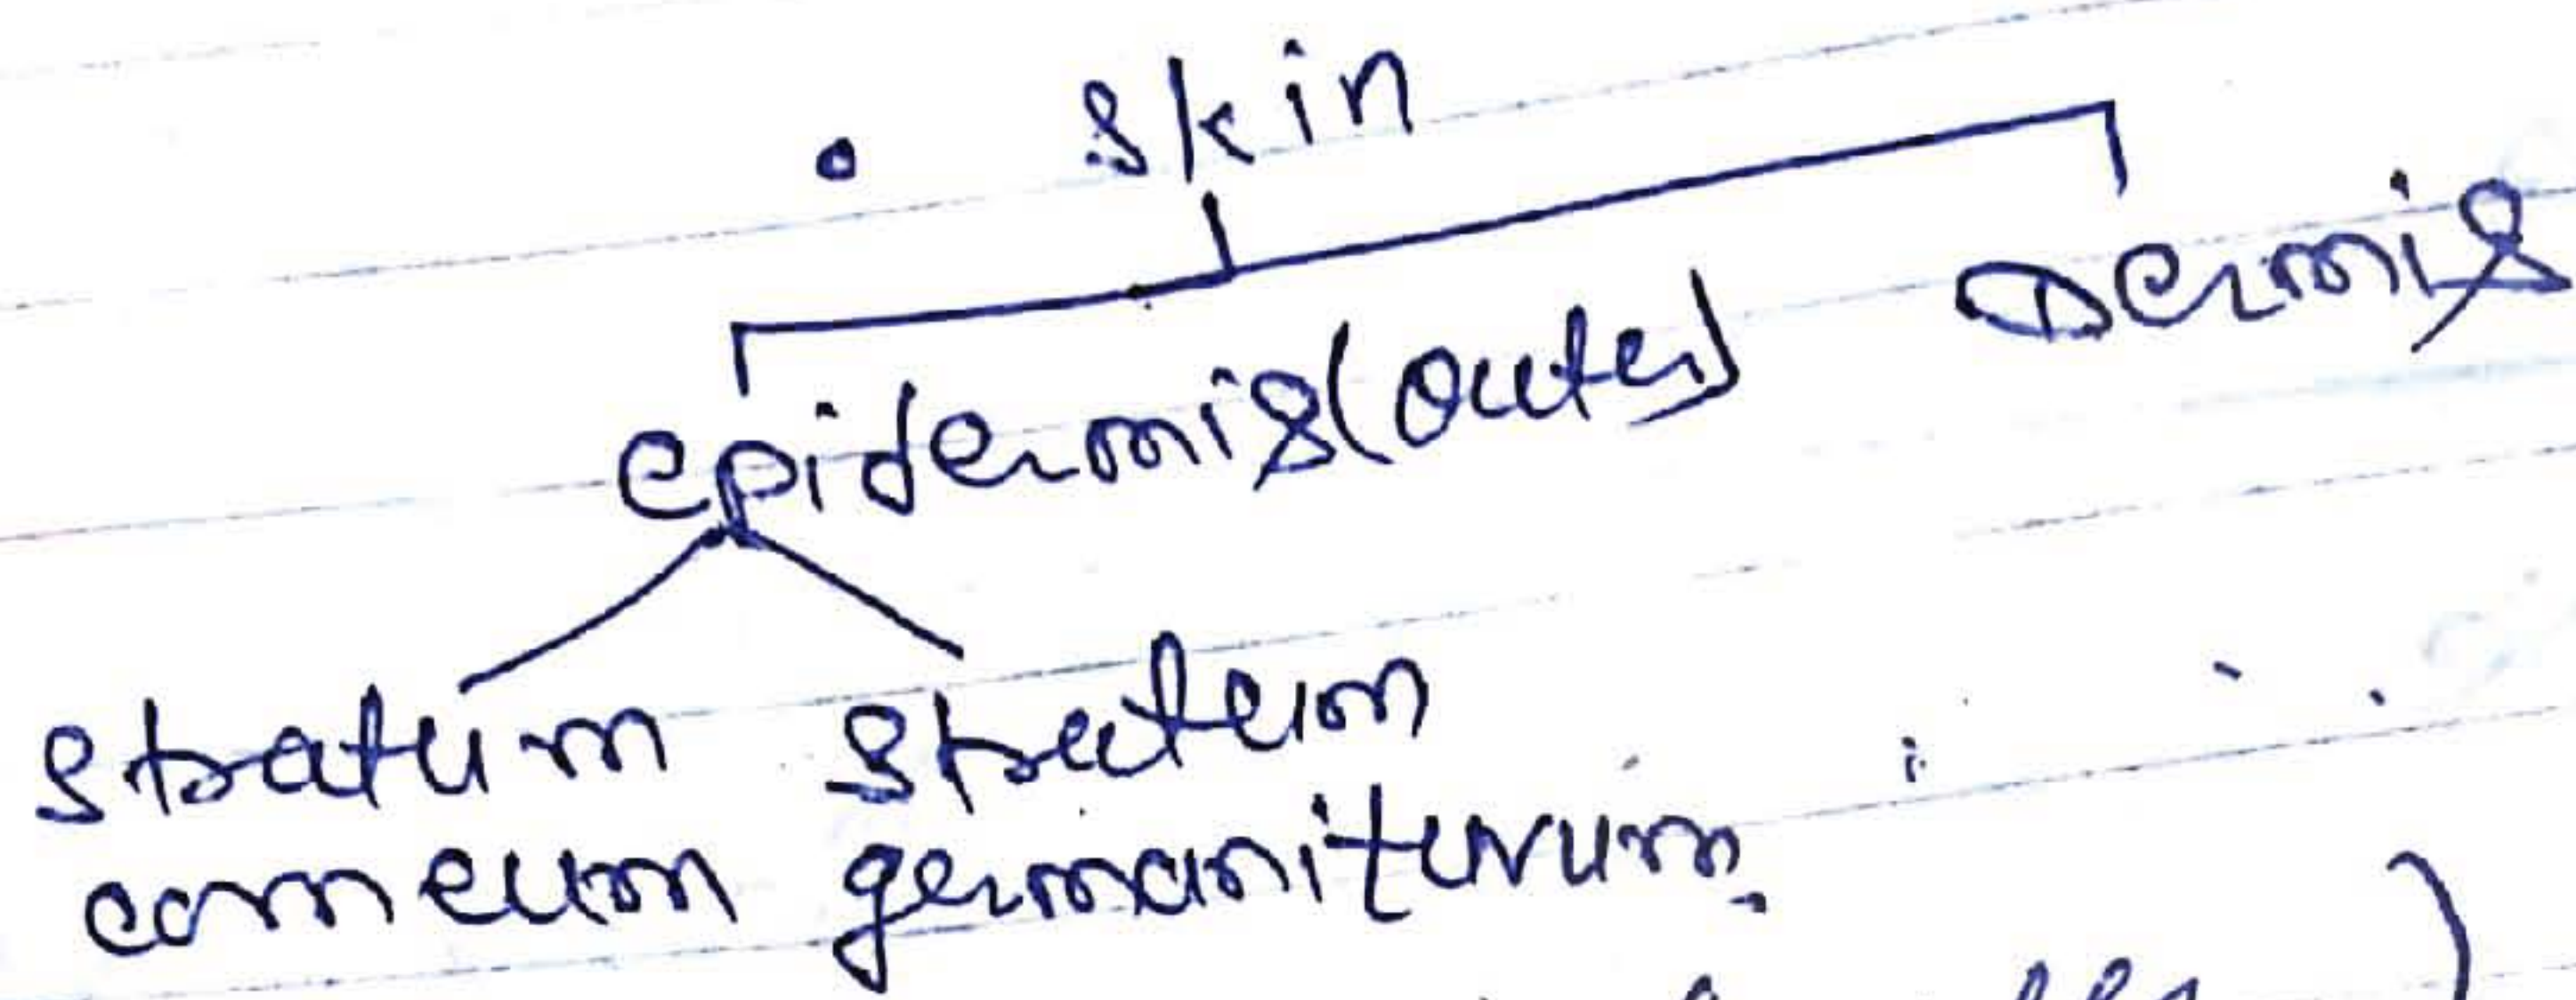 • Skin
epidermis (outer) Dermis
Stratum Stratum
corneum germanitivum.